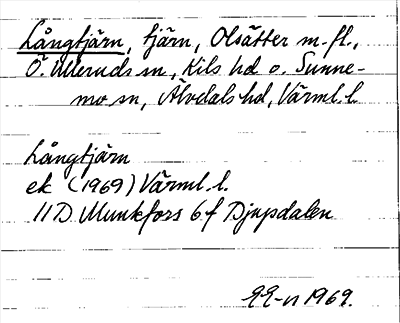 Långtjärn, tjärn, Olsätter m.fl.,
Ö. Ulleruds sn, Kils hd o. Sunne-
mo sn, Älvdals hd, Värml. l.
Långtjärn
ek (1969) Värml. l.
11D Munkfors 6f Djupdalen
EE-n 1969.